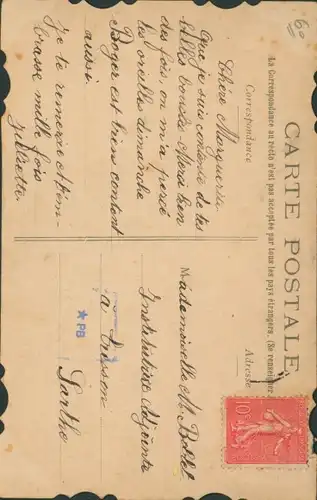 CARTE POSTALE
(La Correspondance au recto n'est pas acceptée par tous les pays étrangers. (Se renseigner
Correspondance
Adresse
Chère Marguerite
Que je suis contente de tes
belles boucles
des fois on m'a percé
les oreilles dimanche
Roger est bien content
aussi.
Je te remercie et t'em-
brasse mille fois
Juliette.
Mademoiselle M. Bollet
Institutrice Adjointe
à
Sarthe
★ PB
60
10